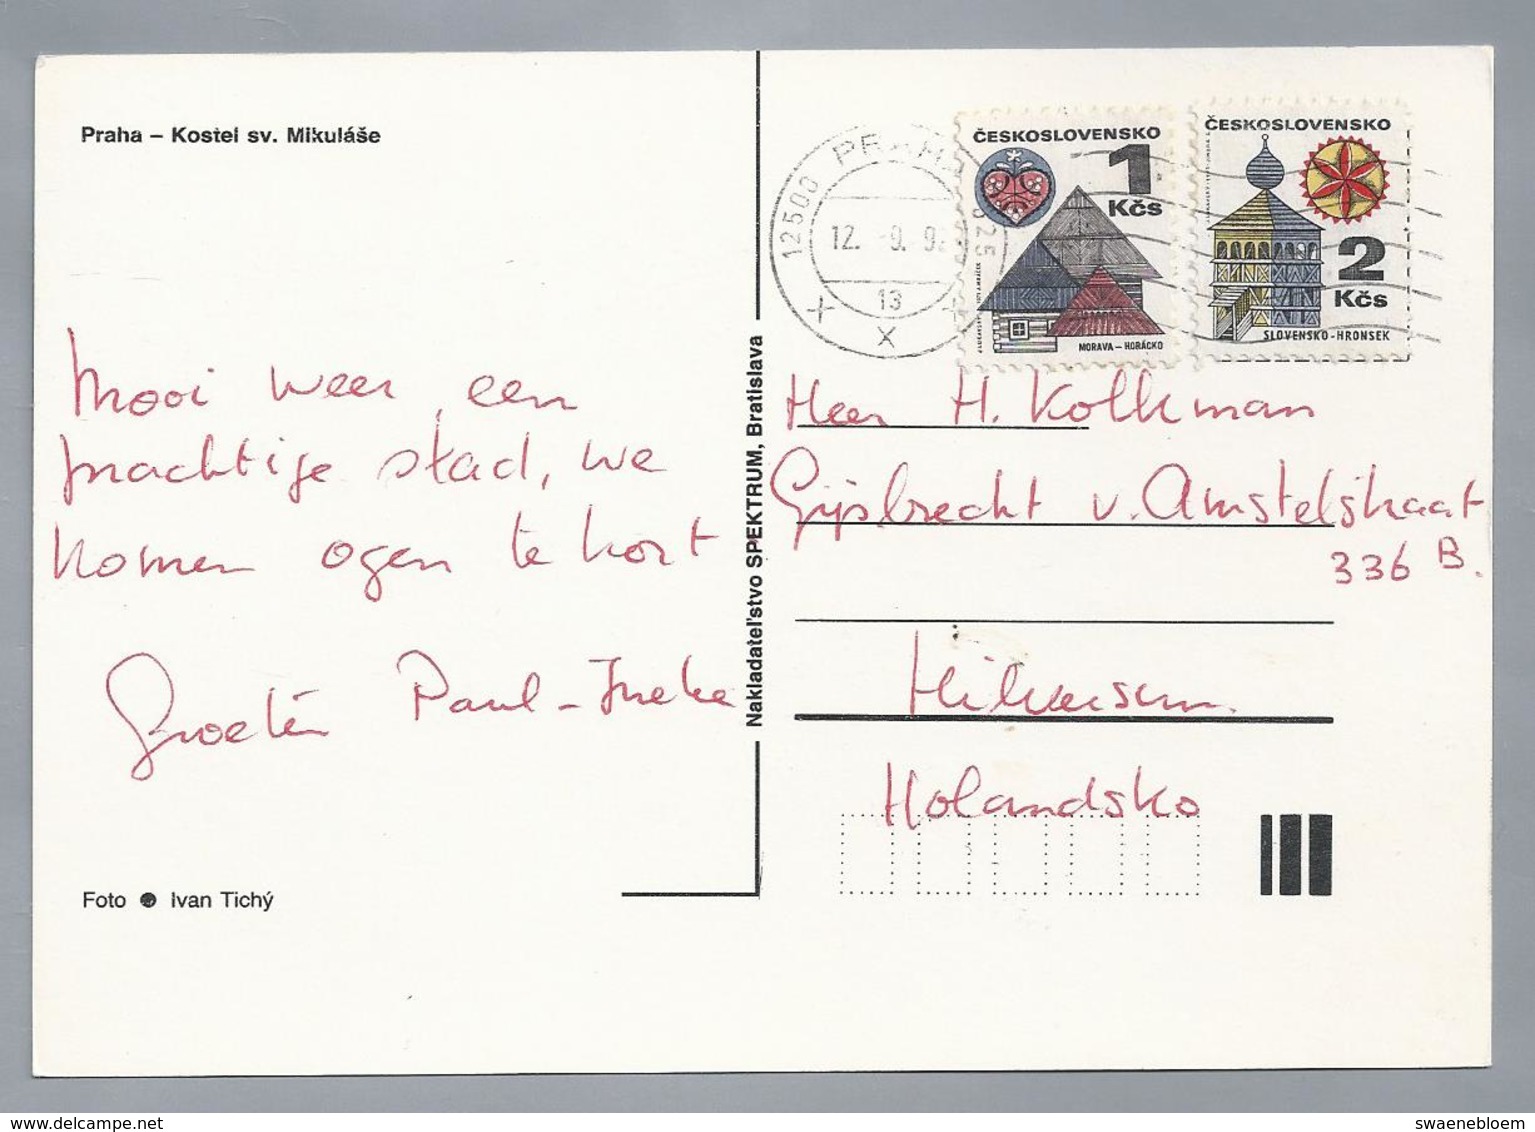 Praha – Kostel sv. Mikuláše
Mooi weer, een
prachtige stad, we
komen ogen te kort
Groeten Paul - Ineke
Foto ● Ivan Tichý
Nakladateľstvo SPEKTRUM, Bratislava
12500 PRAHA 025
12. -9. 9
13
X X
ČESKOSLOVENSKO
1
Kčs
MORAVA – HORÁCKO
ČESKOSLOVENSKO
2
Kčs
SLOVENSKO - HRONSEK
Heer H. Kolkman
Gijsbrecht v. Amstelstraat
336 B.
Hilversum.
Holandsko
www.delcampe.net
swaenebloem